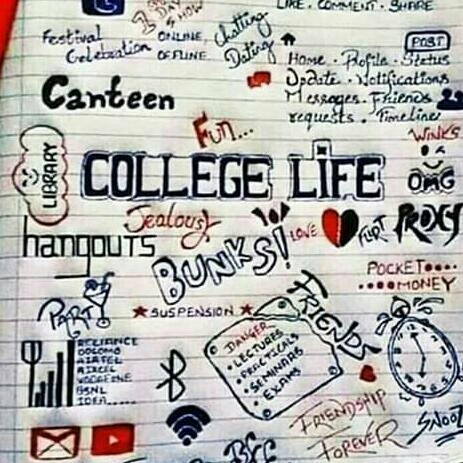 LIKE. COMMENT. SHARE
DAY
SHOW
Festival
Celebration
ONLINE
OFFLINE
Chatting
Dating
POST
Home. Profile. Status
Update. Notifications
Messages. Friends
requests. Timeline
Canteen
Fun...
WINKS
LIBRARY
COLLEGE LIFE
OMG
Jealousy
hangouts
BUNKS!
LOVE
FLIRT
PROXY
POCKET
MONEY
PARTY
SUSPENSION
FRIENDS
RELIANCE
DOCOMO
AIRTEL
AIRCEL
VODAFONE
BSNL
IDEA......
DANGER
LECTURES
PRACTICALS
SEMINARS
EXAMS
FRIENDSHIP
FOREVER
SNOOZ
BFF